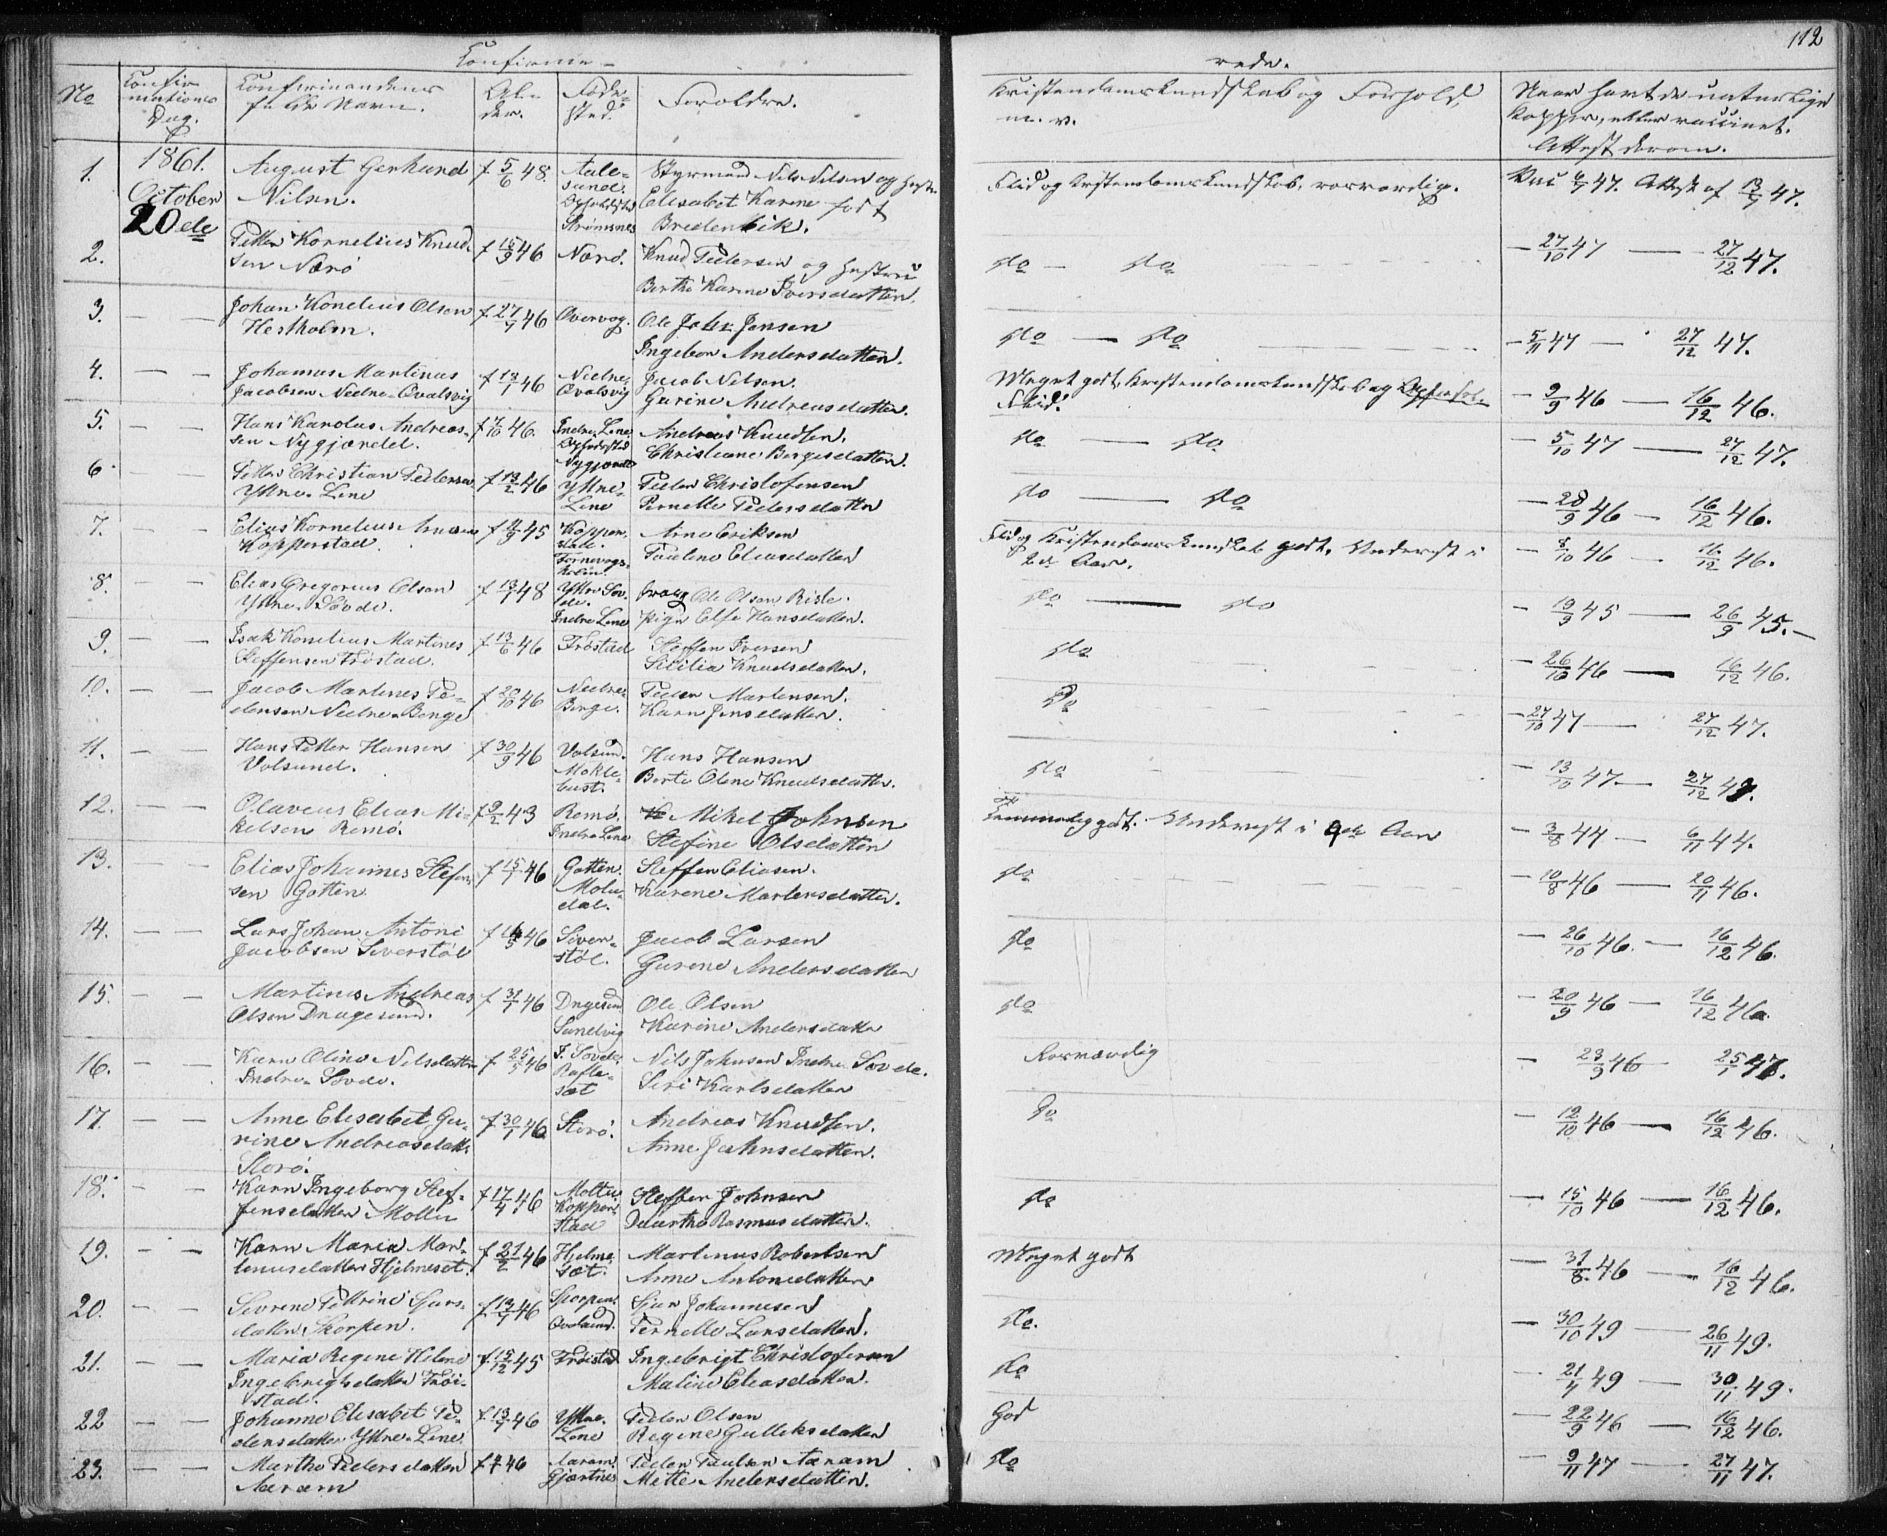 112
Confirme-
rede.
No
Confir
mations
Dag.
Confirmandens
fulde Navn.
Al-
der.
Føde-
sted.
Forældre.
Kristendomskundskab og Forhold
m. v.
Naar havt de naturlige
Kopper, eller vaccinert.
Attest derom.
1.
1861.
October
20de
August Gerhard
Nilsen.
f 5/6 48.
Aale-
sund.
Opholdsted
Strømsnes
Styrmand Nils Nilsen og Hustru
Elisabet Karine født
Bredenbik.
Flid og Kristendomskundskab, rosværdig.
Vac 6/7 47. Attest af 13/7 47.
2.
Petter Kornelius Knud-
sen Nærø
f 15/9 46
Nærø.
Knud Pedersen og Hustru
Berthe Karine Iversdatter.
do - do
- 27/10 47 — 27/12 47.
3. — —
Johan Kornelius Olsen
Hestholm.
f 27/7 46
Overvog.
Ole Johs. Jensen
Ingebor Andersdatter.
do — do
- 5/11 47 — 27/12 47.
4. — —
Johannes Martinus
Jacobsen Nedre-Qvalsvig
f 13/7 46
Nedre-
Qvalsvig
Jacob Nilsen.
Gurine Andreasdatter.
Meget godt, Kristendomskundskab og
Flid.
- 9/9 46 — 16/12 46.
5. — —
Hans Karolus Andreas-
sen Nygjærdet.
f 7/10 46.
Indre Line
Opholdsted
Nygjærdet
Andreas Knudsen.
Christiane Børgesdatter.
do — do
- 5/10 47 — 27/12 47.
6 — —
Petter Christian Pedersen
Yttre-Line
f 13/2 46
Yttre-
Line
Peder Christofersen
Pernelle Pedersdatter
do — do
- 28/9 46 — 16/12 46.
7. — —
Elias Kornelius Arnesen
Kopperstad.
f 9/9 45
Kopper-
stad.
Arne Eriksen
Pauline Eliasdatter
Flid og Kristendomskundskab godt. Undervist i
2de Aar.
- 8/10 46 — 16/12 46.
8. — —
Elias Gregorius Olsen
Yttre-Søvde.
f 13/7 48
Yttre Søv-
de.
Indre Line
Ole Olsen Riste.
Pige Else Hansdatter.
do — do
- 19/9 45 — 26/9 45.—
9 — —
Isak Kornelius Martines
Steffensen Frøstad.
f 13/6 46
Frøstad
Steffen Iversen
Sicilia Knudsdatter.
do
- 26/10 46 — 16/12 46.
10. — —
Jacob Martines Pe-
dersen Nedre-Berge
f 20/10 46
Nedre-
Berge.
Peder Martensen.
Karn Jensdatter.
do
- 27/10 47 — 27/12 47.
11. — —
Hans Petter Hansen
Volsund.
f 30/9 46
Volsund.
Mokle-
bust.
Hans Hansen
Berte Oline Knudsdatter.
do
- 13/10 47 — 27/12 47.
12. — —
Olavus Elias Mi-
kelsen Remø.
f 9/2 43
Remø.
Indre Line
Mikel Johnsen
Stefine Olsdatter
Temmelig godt. Undervist i 9de Aar
- 3/8 44 — 6/11 44.
13. — —
Elias Johannes Stefen-
sen Gotten
f 15/7 46
Gotten.
Molu-
dal.
Steffen Eliasen.
Karene Martensdatter.
do
- 10/8 46 — 20/11 46.
14. — —
Lars Johan Antoni
Jacobsen Siverstøl
f 14/5 46
Siver-
støl.
Jacob Larsen
Gurene Andersdatter
do
- 26/10 46. — 16/12 46.
15. — —
Martinus Andreas
Olsen Dragesund.
f 31/7 46
Dragesund
Sandvig
Ole Olsen
Karine Andersdatter
do
- 20/9 46 — 16/12 46.
16. — —
Karn Olina Nilsdatter
Indre-Søvde.
f 25/5 46
I. Søvde.
Rafte-
sæt
Nils Johnsen Indre-Søvde.
Siri Karlsdatter
Rosværdig
- 23/9 46 — 25/1 47.
17. — —
Anne Elisabet Gu-
rine Andreasdatter
Storø.
f 30/1 46
Storø.
Andreas Knudsen.
Anne Johnsdatter.
do
- 12/10 46 — 16/12 46.
18. — —
Karn Ingeborg Stef-
fensdatter Moltu
f 17/4 46
Moltu
Kopper-
stad
Steffen Johnsen
Marthe Rasmusdatter.
do
- 15/10 46 — 16/12 46.
19. — —
Karn Maria Mar-
tinusdatter Hjelmeset.
f 21/2 46
Hjelme-
sæt.
Martinus Robertsen
Anne Antonsdatter
Meget godt
— 31/8 46 — 16/12 46.
20. — —
Sivrene Pettrine Sjurs-
datter Skorpen.
f 13/7 46
Skorpen
Qvalsund.
Sjur Johannesen
Pernelle Larsdatter.
do.
- 30/10 49 — 26/11 49.
21. — —
Maria Regine Helene
Ingebrigtsdatter Frøi-
stad.
f 12/12 45
Frøistad
Ingebrigt Christofersen
Maline Eliasdatter.
do
— 21/7 49 — 30/11 49.
22 — —
Johanne Elisabet Pe-
dersdatter Yttre-Line
f 13/7 46
Yttre-
Line
Peder Olsen
Regine Gulleksdatter
God
— 22/9 46 — 16/12 46.
23. — —
Marthe Pedersdatter
Aaram
46
Aaram
Gjærtnes
Peder Paulsen Aaram
Mette Andersdatter.
do
- 9/11 47 — 27/11 47.